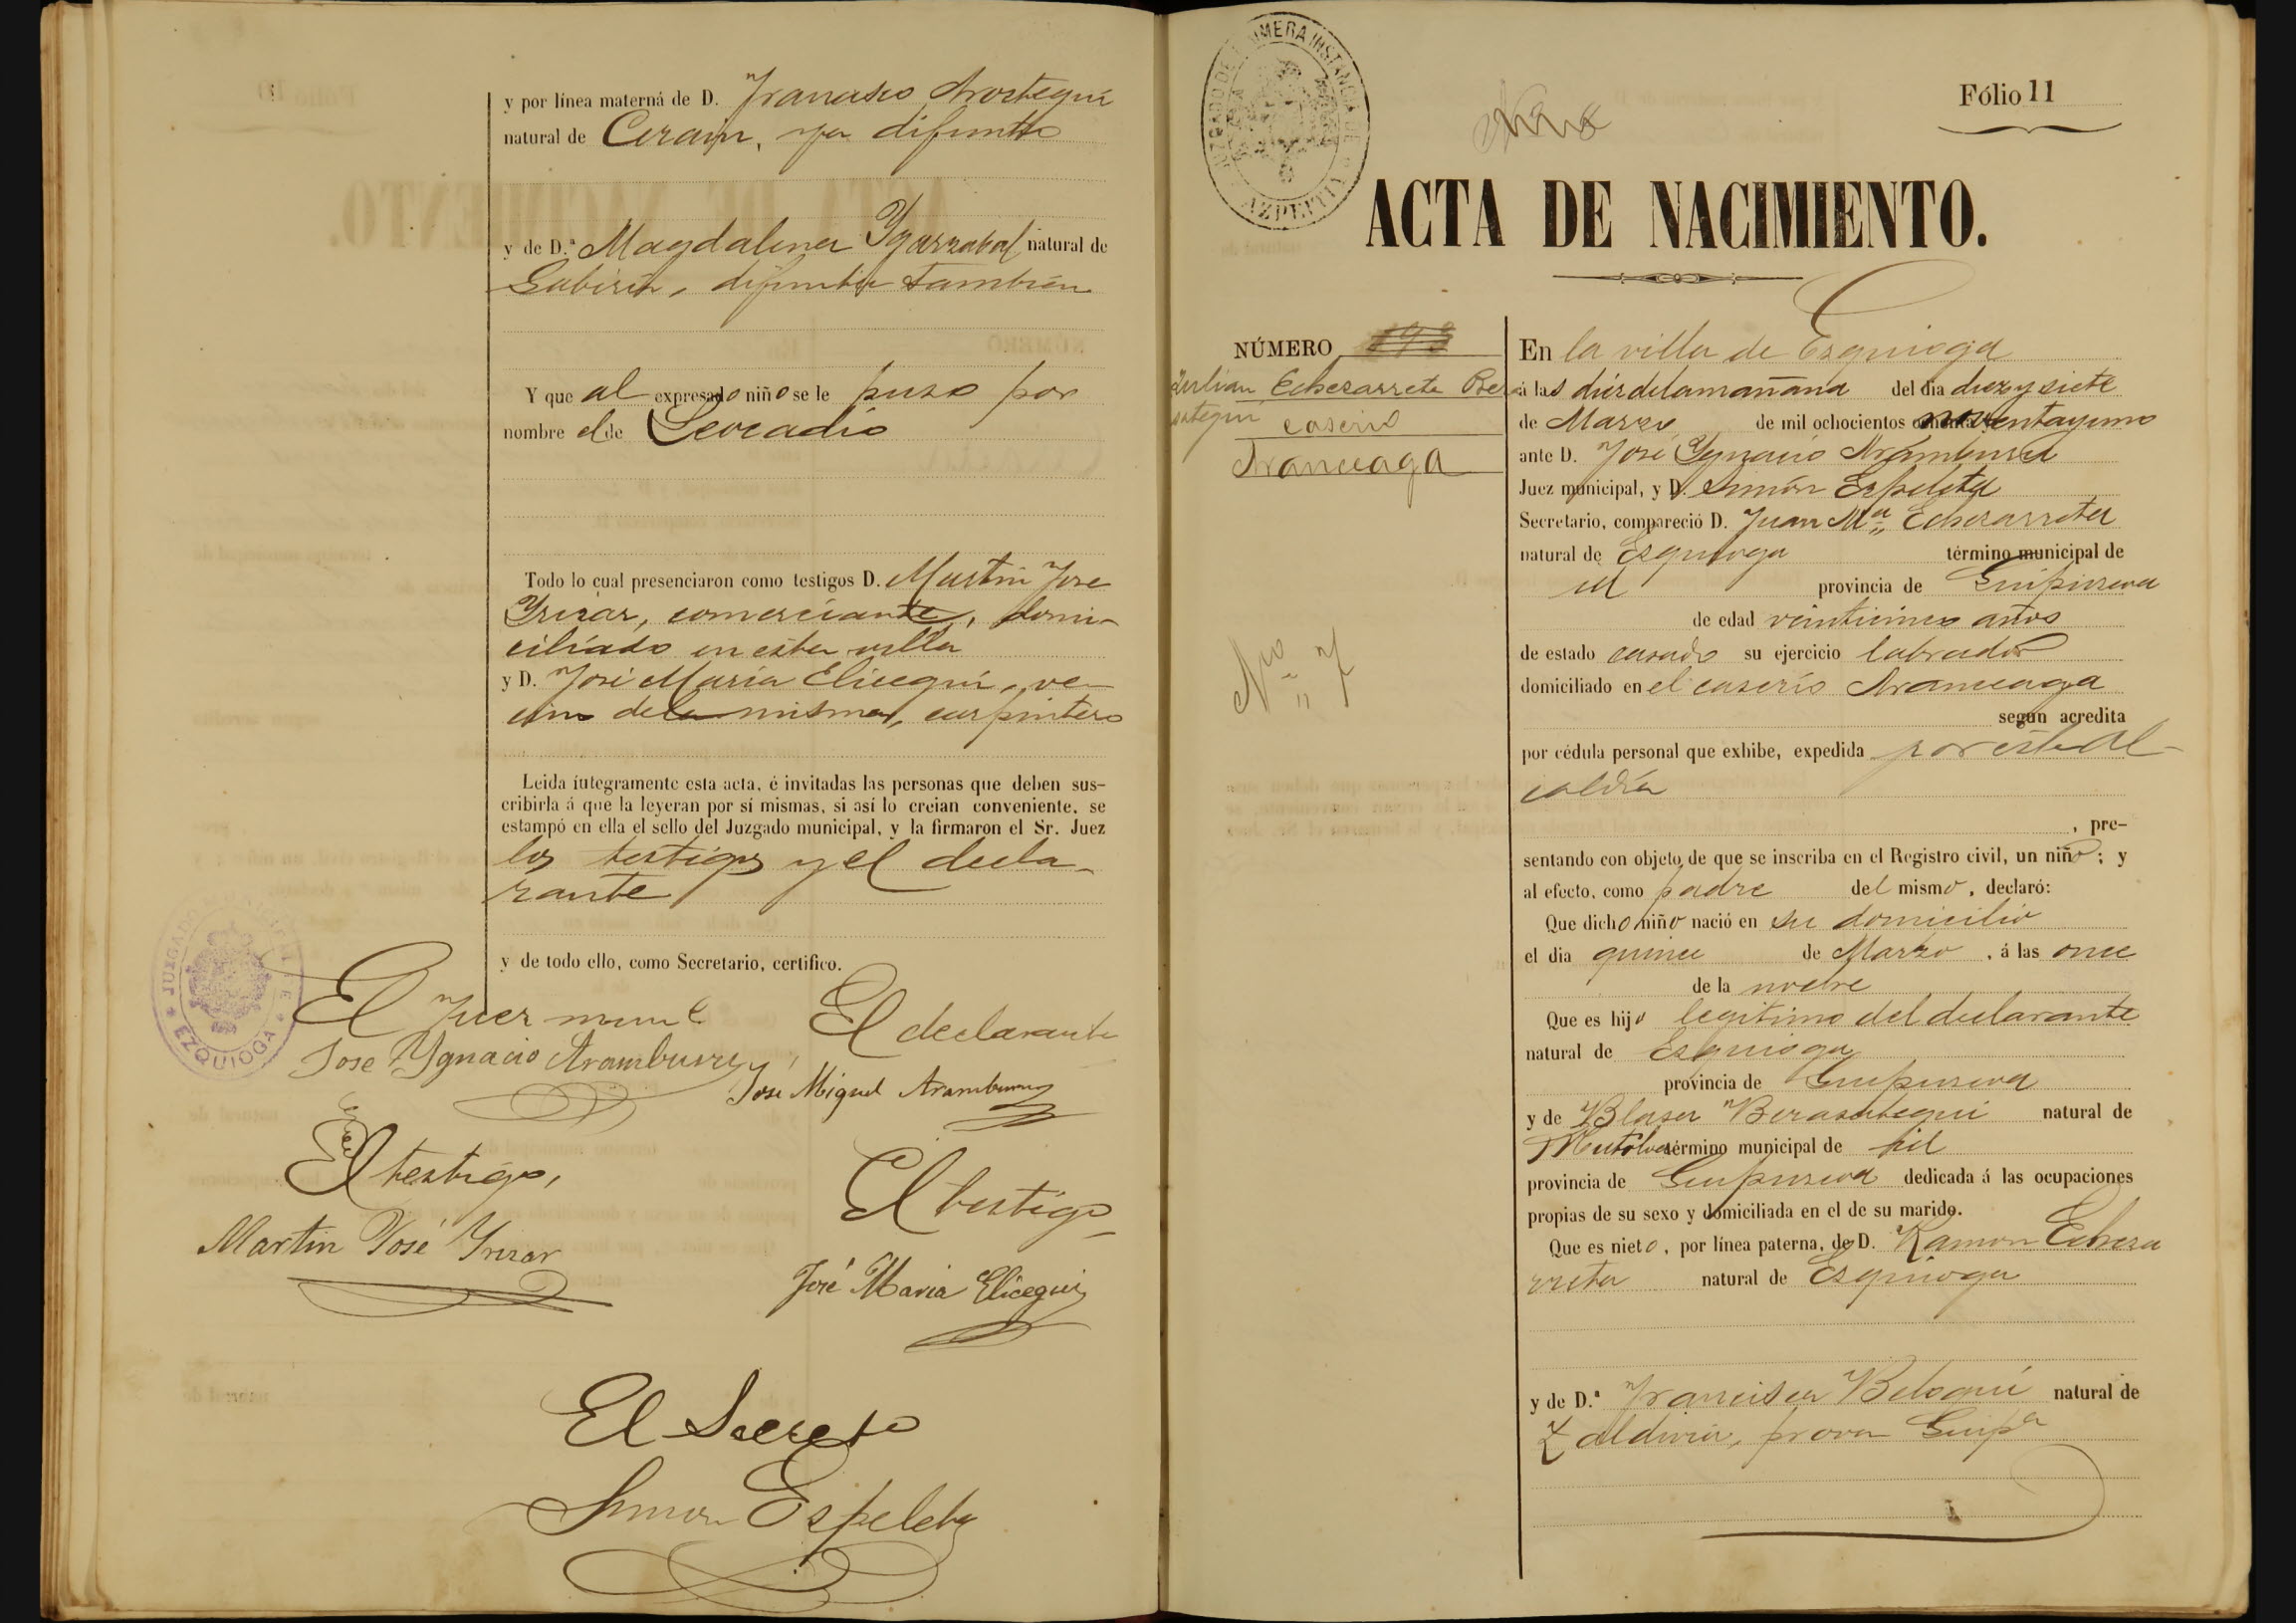 y por línea materna de D. Francisco Arostegui
natural de Cerain, ya difunto
y de D.ª Magdalena Ygarzabal natural de
Gabiria, difunta tambien
Y que al expresado niño se le puso por
nombre el de Leocadio
Todo lo cual presenciaron como testigos D. Martin Jose
Yrizar, comerciante, domi-
ciliado en esta villa
y D. José Maria Elicegui, ve-
cino de la misma, carpintero
Leida íntegramente esta acta, é invitadas las personas que deben sus-
cribirla á que la leyeran por sí mismas, si así lo creian conveniente, se
estampó en ella el sello del Juzgado municipal, y la firmaron el Sr. Juez
los testigos y el decla-
rante
y de todo ello, como Secretario, certifico.
EZQUIOGA
El Juez munl
Jose Ygnacio Aramburu
El declarante
Jose Miguel Aramburu
El testigo,
Martin José Yrizar
El testigo
José Maria Elicegui
El Secreto
Simon Ezpeleta
JUZGADO DE PRIMERA INSTANCIA DE AZPEITIA
Fólio 11
ACTA DE NACIMIENTO.
NÚMERO 193
Julian Echezarreta Ber
astegui
caserio
Aranceaga
Nº 7
En la villa de Ezquioga
á las diez de la mañana del dia diez y siete
de Marzo de mil ochocientos noventa y uno
ante D. José Ygnacio Aramburu
Juez municipal, y D. Simón Ezpeleta
Secretario, compareció D. Juan Mª Echezarreta
natural de Ezquioga término municipal de
id provincia de Guipuzcoa
de edad veinticinco años
de estado casado su ejercicio labrador
domiciliado en el caserío Aranceaga
segun acredita
por cédula personal que exhibe, expedida por esta Al-
caldía
, pre-
sentando con objeto de que se inscriba en el Registro civil, un niño; y
al efecto, como padre del mismo, declaró:
Que dicho niño nació en su domicilio
el dia quince de Marzo, á las once
de la noche
Que es hijo legitimo del declarante
natural de Ezquioga
provincia de Guipuzcoa
y de Blasa Berasategui natural de
Mutiloa término municipal de id
provincia de Guipuzcoa dedicada á las ocupaciones
propias de su sexo y domiciliada en el de su marido.
Que es nieto, por línea paterna, de D. Ramon Echeza
rreta natural de Ezquioga
y de D.ª Francisca Beloqui natural de
Zaldivia, prova Guipª